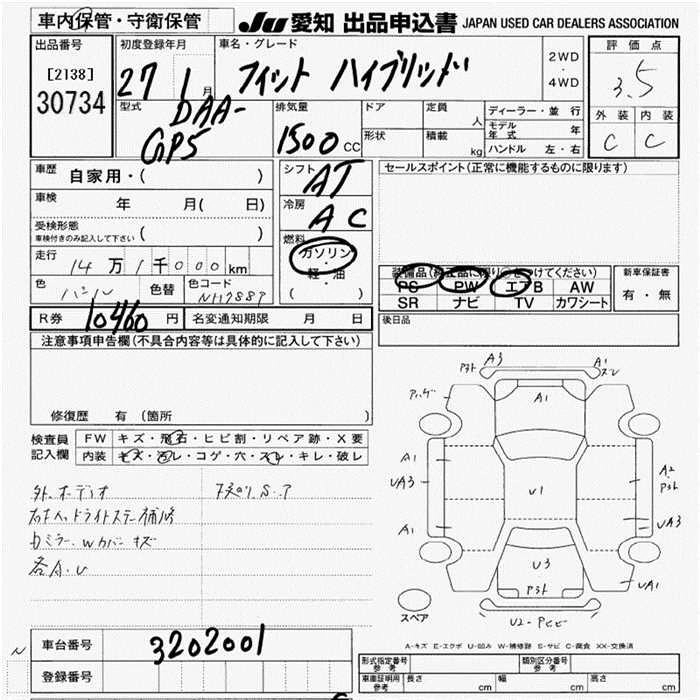 車内保管・守衛保管
JU 愛知 出品申込書 JAPAN USED CAR DEALERS ASSOCIATION
出品番号
[2138]
30734
初度登録年月
27 1月
車名・グレード
フィット ハイブリッド
2WD
・
4WD
評価点
3.5
外装 内装
C C
型式
DAA-
GP5
排気量
1500 CC
ドア
定員
人
形状
積載
kg
ディーラー・並行
モデル年式 年
ハンドル 左・右
車歴
自家用・( )
車検
年 月( 日)
受検形態
車検付きのみ記入して下さい ( )
走行
14万1千000km
色
パール
色替
色コード
NH788P
シフト
AT
冷房
AC
燃料
ガソリン
・
軽・油
( )
セールスポイント(正常に機能するものに限ります)
装備品(純正品に限り○をつけてください)
PS PW エアB AW
SR ナビ TV カワシート
新車保証書
有・無
R券 10460円
名変通知期限 月 日
後日品
注意事項申告欄(不具合内容等は具体的に記入して下さい)
修復歴 有 (箇所 )
検査員
記入欄
FW キズ・飛石・ヒビ割・リペア跡・X要
内装 キズ・汚レ・コゲ・穴・スレ・キレ・破レ
外.オーディオ
ミラー.Wカバーキズ
各A.U
A3
A1
A1
A1
U1
UA3
A1
A2
UA3
U3
UA1
スペア
A-キズ E-エクボ U-凹み W-補修跡 S-サビ C-腐食 XX-交換済
車台番号
3202001
登録番号
形式指定番号
参考
類別区分番号
参考
車庫証明用
参考
長さ cm 幅 cm 高さ cm